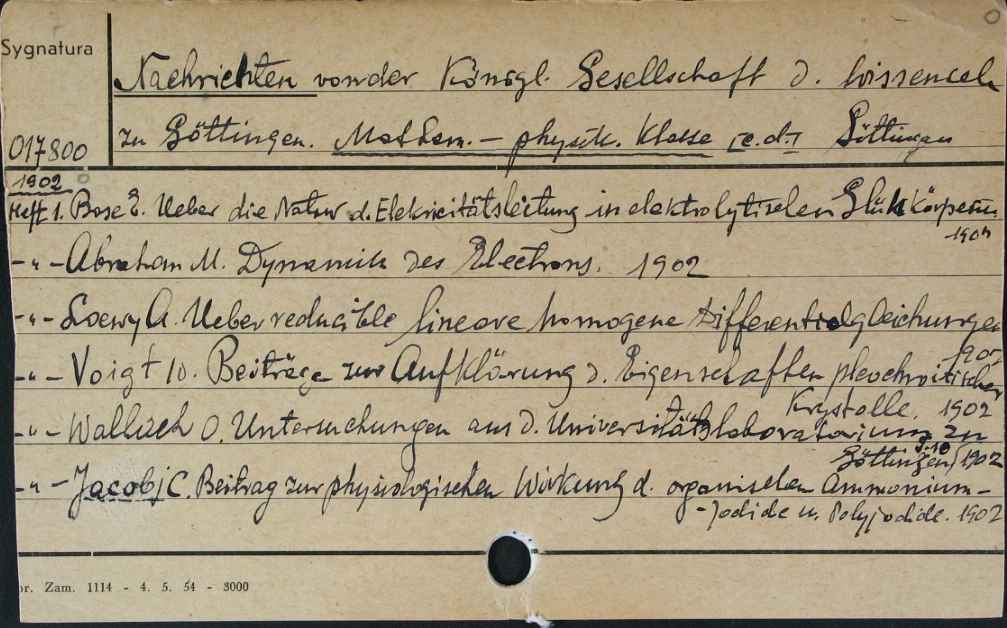 Sygnatura
Nachrichten von der Königl. Gesellschaft d. Wissensch
zu Göttingen. Mathem. – physik. Klasse Göttingen
017800
1902
Heft 1. Bose E. Ueber die Natur d. Elekricitätsleitung in elektrolytischen Glühkörpern
1902
– " – Abraham M. Dynamik des Electrons. 1902
– " – Loewy A. Ueber reducible lineare homogene Differentialgleichungen
190
– " – Voigt W. Beiträge zur Aufklärung d. Eigenschaften pleochroitischer
Krystalle. 1902
– " – Wallach O. Untersuchungen aus d. Universitätslaboratorium zu
Göttingen 1902
– " – Jacobj C. Beitrag zur physiologischen Wirkung d. organischen Ammonium–
–Jodide u. Polyjodide. 1902
or. Zam. 1114 - 4. 5. 54 - 3000